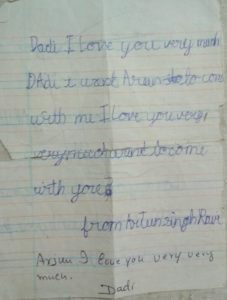 Dadi I Love you very much
DAdi i want Arun to com
with me I Love you very
very much want to come
with you
from Singh
Arjun I love you very very
much.
Dadi